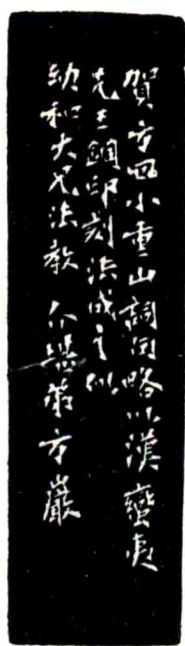 賀方回小重山詞句略以漢蠻夷
王銅印刻法成之似
幼和大兄法教 介堪弟方巖